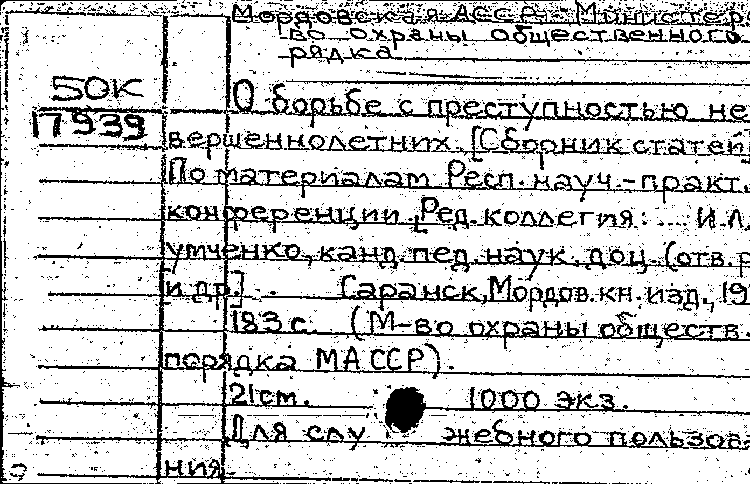 Мордовская АССР. Министер
во охраны общественного
рядка
50К
17939
О борьбе с преступностью не
вершеннолетних. [Сборник статей
По материалам Респ. науч.-практ.
конференции. Ред. коллегия: ... И.Л.
умченко, канд. пед. наук, доц. (отв. р
и др.] . Саранск, Мордов. кн. изд., 19
183 с. (М-во охраны обществ.
порядка МАССР).
21 см. 1000 экз.
Для слу жебного пользова
ния.